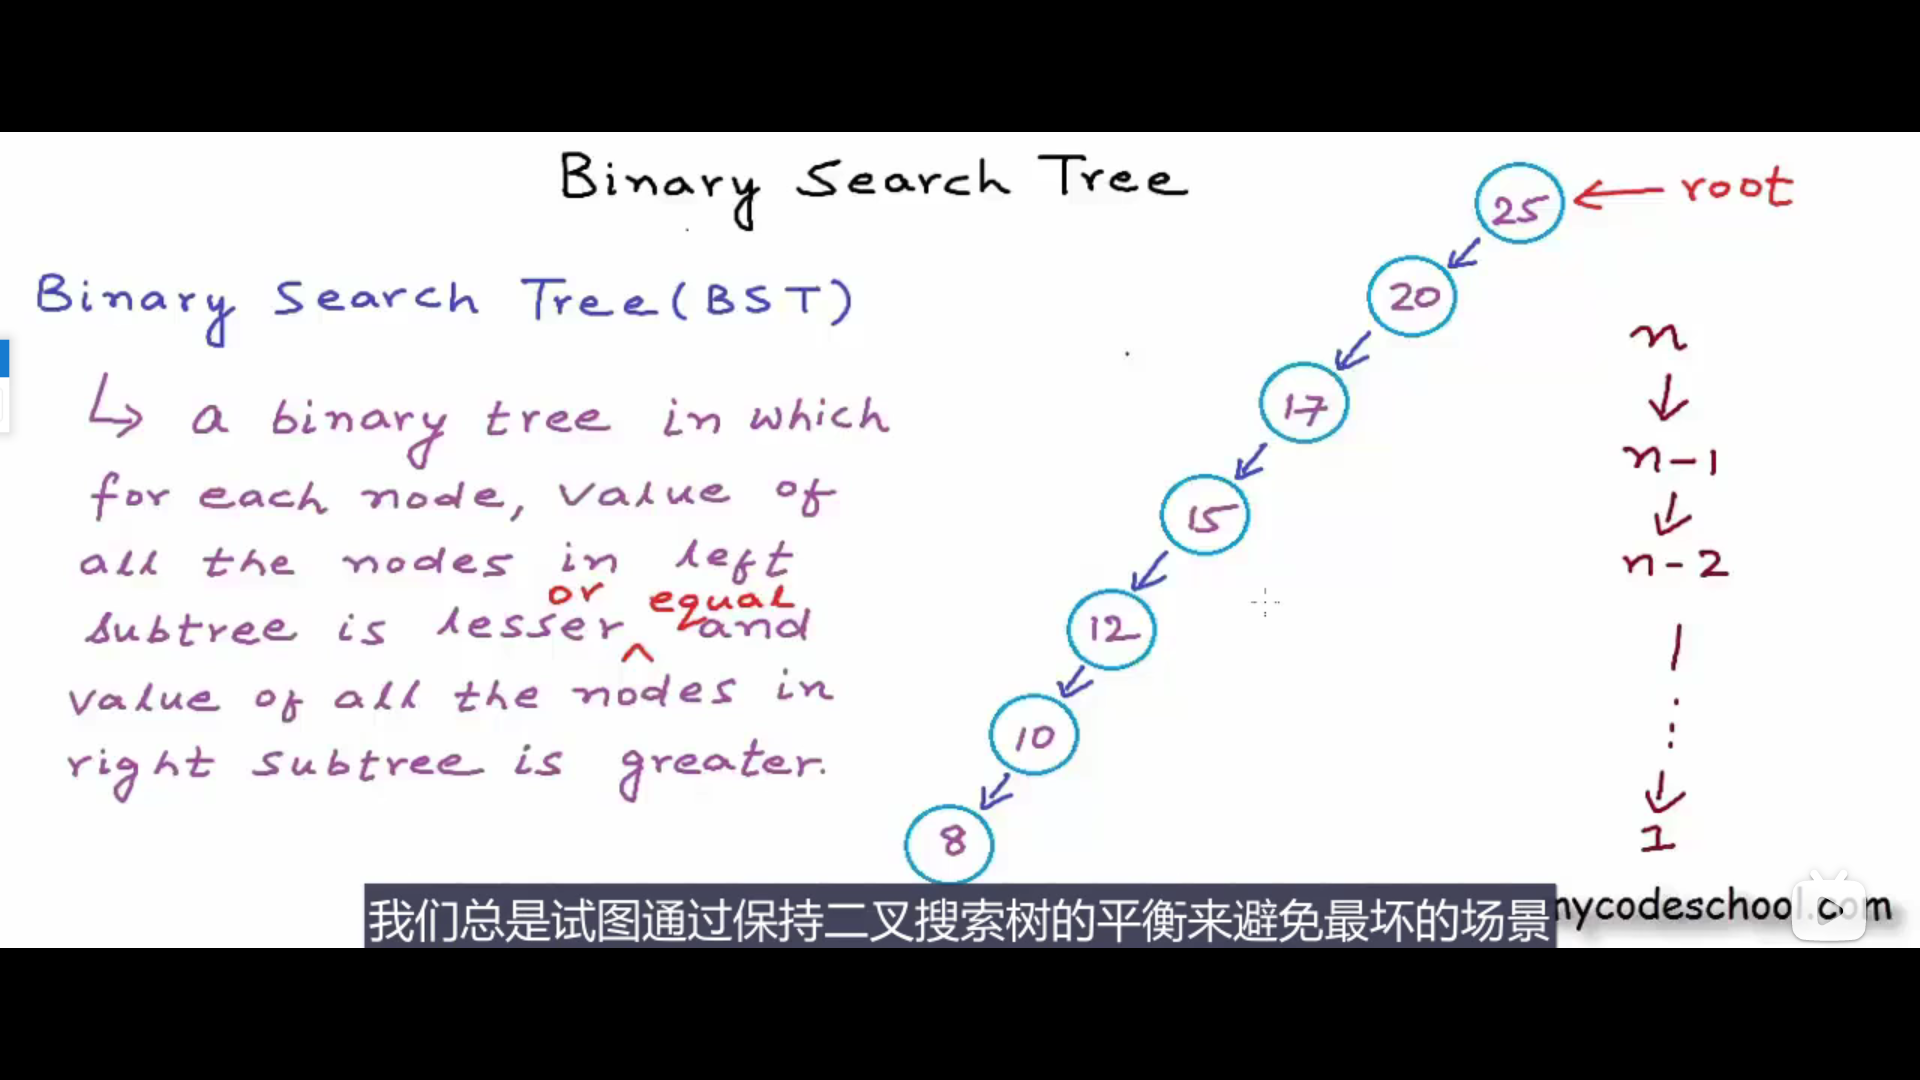 Binary Search Tree
Binary Search Tree (BST)
↳ a binary tree in which
for each node, value of
all the nodes in left
or equal
subtree is lesser ^ and
value of all the nodes in
right subtree is greater.
25 ← root
20
17
15
12
10
8
n
↓
n-1
↓
n-2
⋮
↓
1
我们总是试图通过保持二叉搜索树的平衡来避免最坏的场景
mycodeschool.com